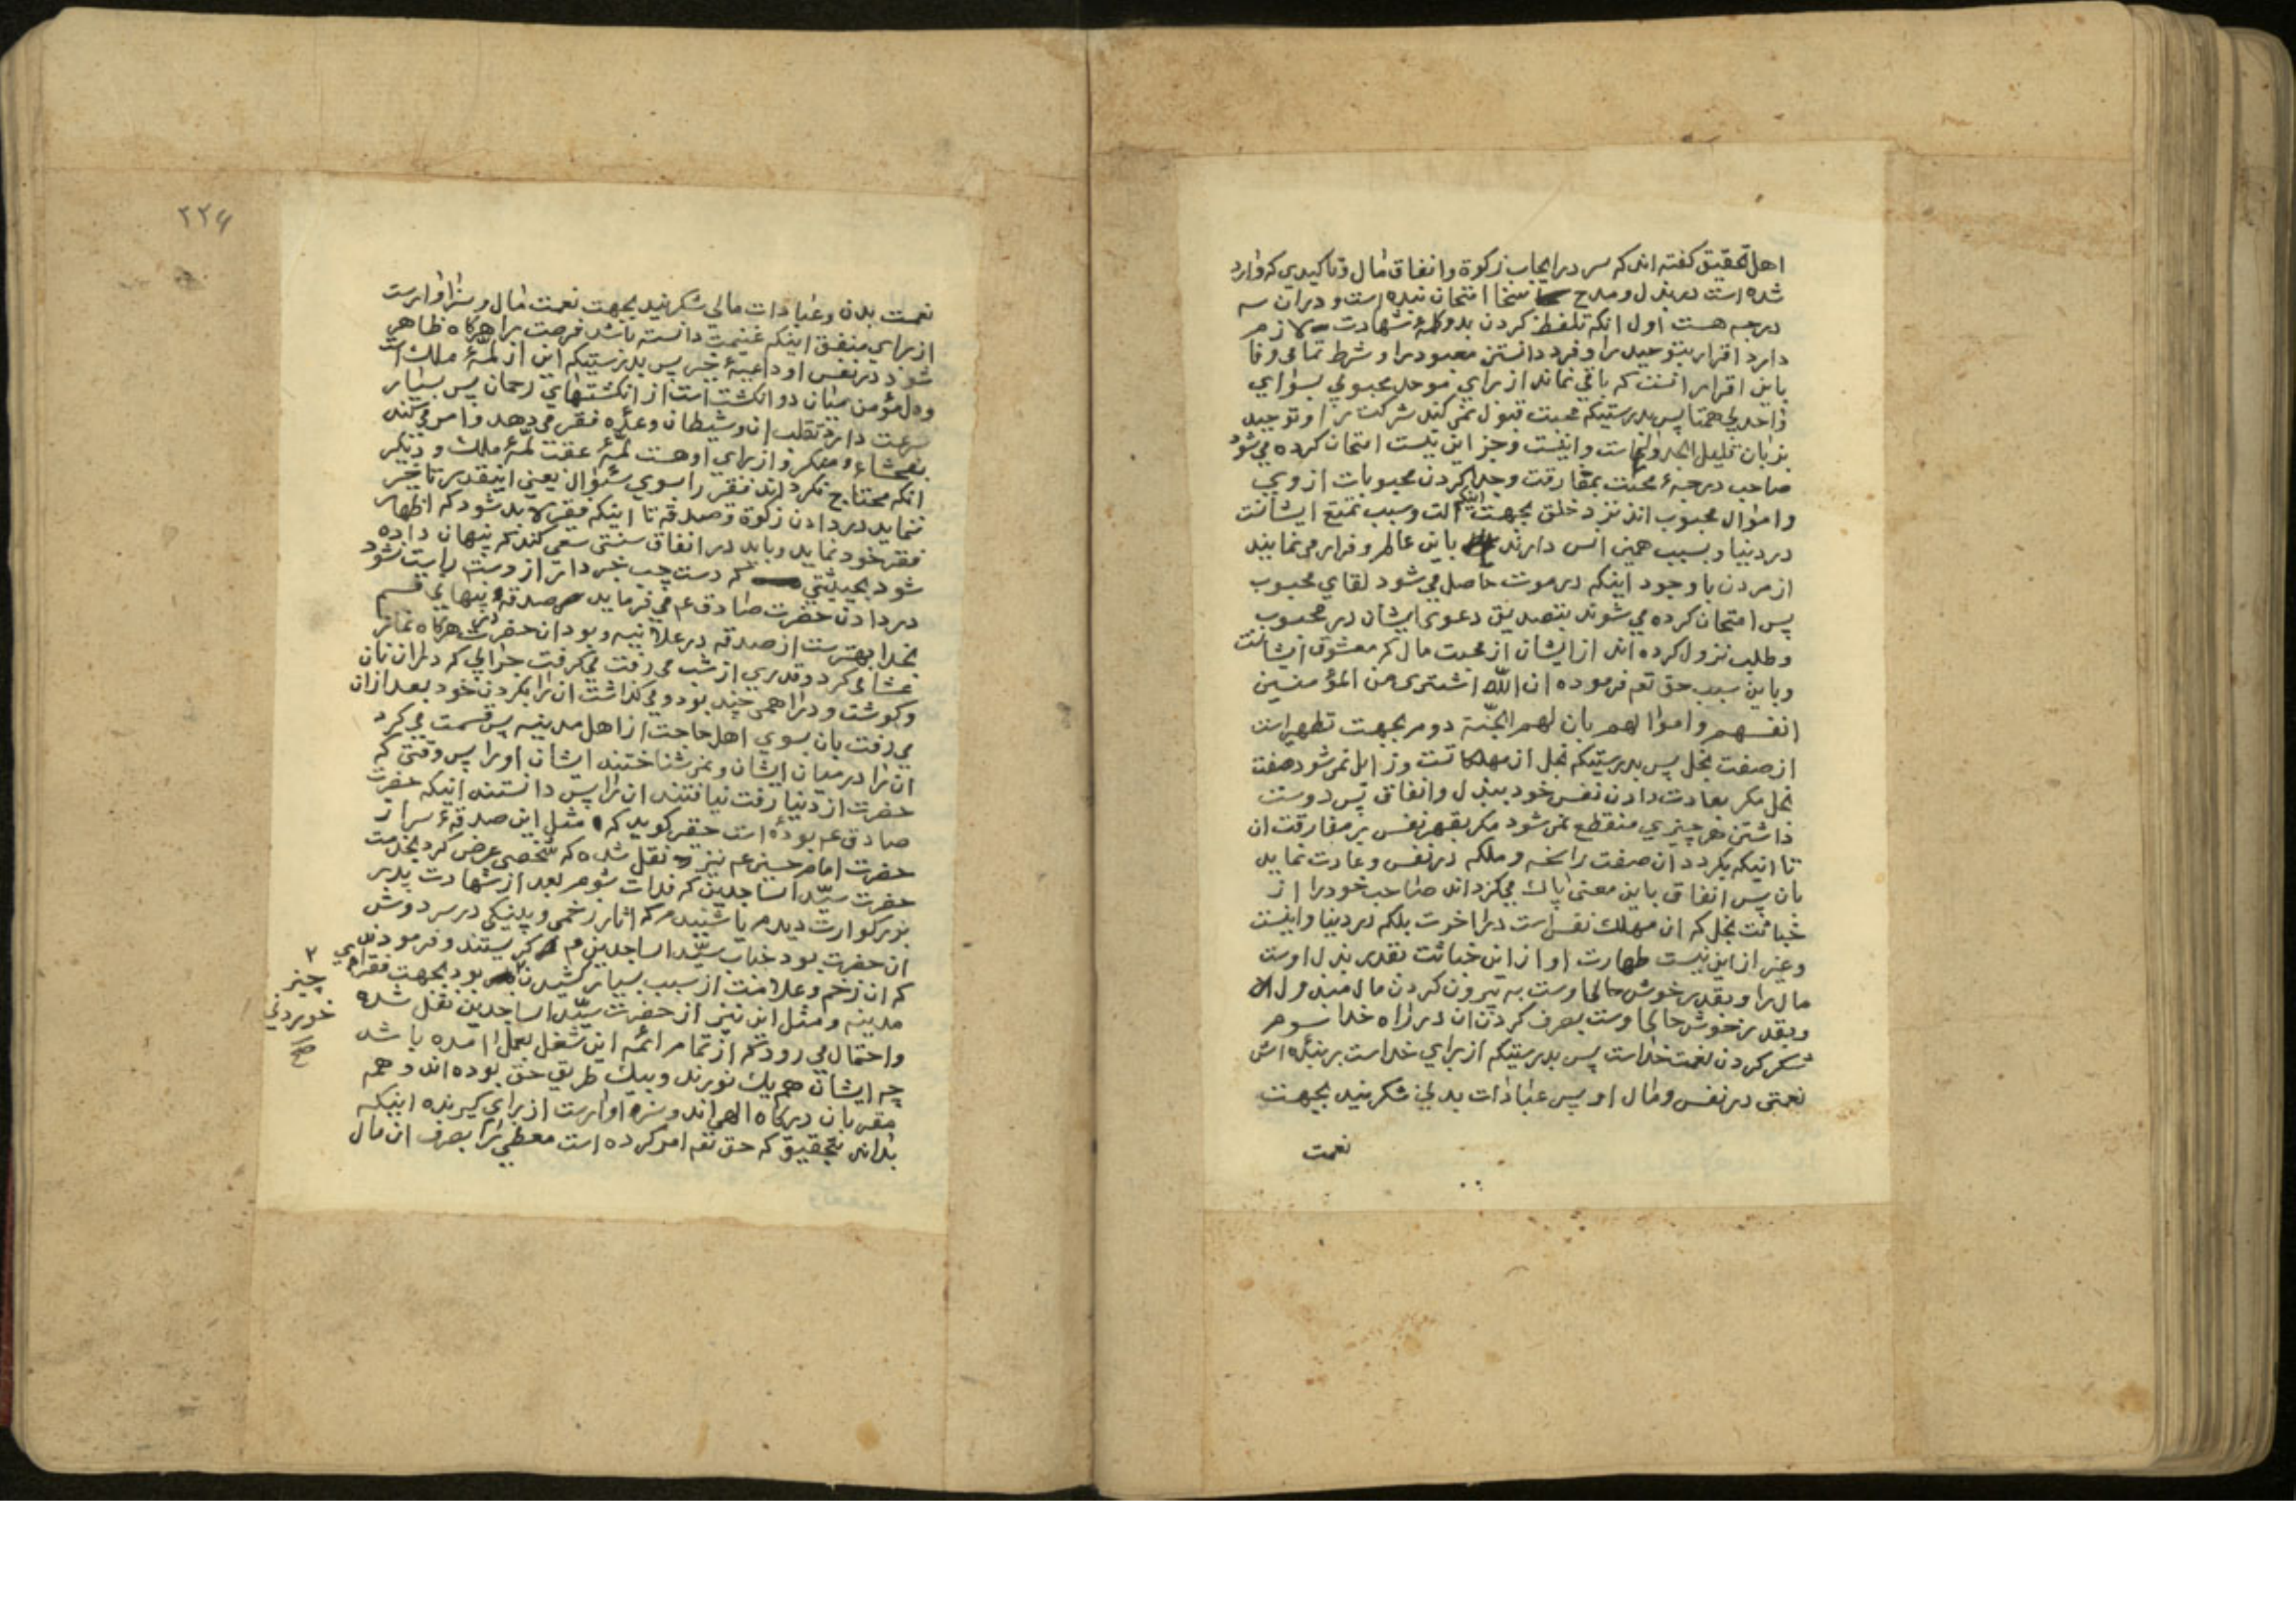 اهل تحقیق کفته اند که سر در ایجاب زکوة و انفاق مال و تاکیدی که وارد
شده است در بذل و مدح سخا امتحان بنده است و در ان سه
درجه هست اول انکه تلفظ کردن بدو کلمۀ شهادت لازم
دارد اقرار بتوحید را و فرد دانستن معبود را و شرط تمامی وفا
باین اقرار انست که باقی نماند از برای موحد محبوبی بسوای
واحد بی همتا پس بدرستیکه محبت قبول نمی کند شرکت را و توحید
بزبان قلیل الجدواست و اینست و جز این نیست امتحان کرده می شود
صاحب درجۀ محبت بمفارقت و جدا کردن محبوبات از وی
و اموال محبوب اند نزد خلق بجهت اینکه الت و سبب تمتع ایشانست
در دنیا و بسبب همین انس دارند باین عالم و فرار می نمایند
از مردن با وجود اینکه در موت حاصل می شود لقای محبوب
پس امتحان کرده می شوند بتصدیق دعوی ایشان در محبوب
و طلب نزول کرده اند از ایشان از محبت مال که معشوق ایشانست
و باین سبب حق تع فرموده ان الله اشتری من المؤمنین
انفسهم و اموالهم بان لهم الجنّة دوم بجهت تطهیر است
از صفت بخل پس بدرستیکه بخل از مهلکاتست و زایل نمی شود صفت
بخل مکر بعادت دادن نفس خود ببذل و انفاق پس دوست
داشتن هر چیزی منقطع نمی شود مکر بقهر نفس بر مفارقت ان
تا اینکه بکردد ان صفت راسخه و ملکه در نفس و عادت نماید
بان پس انفاق باین معنی پاک می کرداند صاحب خود را از
خباثت بخل که ان مهلک نفس است در اخرت بلکه در دنیا و اینست
و غیر از این نیست طهارت او از این خباثت بقدر بذل اوست
مال را و بقدر خوش حالی اوست به بیرون کردن مال مبذول
و بقدر خوش حالی اوست بصرف کردن ان در راه خدا سوم
شکر کردن نعمت خداست پس بدرستیکه از برای خداست بر بنده اش
نعمتی در نفس و مال او پس عبادات بدنی شکرنید بجهت
نعمت
۲۲۶
نعمت بدن و عبادات مالی شکرنید بجهت نعمت مال و سزاوارست
از برای منفق اینکه غنیمت دانسته باشد فرصت را هرکاه ظاهر
شود در نفس او داعیۀ خیر پس بدرستیکه این از لمّۀ ملک است
و دل مؤمن میان دو انکشت است از انکشتهای رحمان پس بسیار
سرعت دارد تقلب ان و شیطان وعدۀ فقر می دهد و امر می کند
بفحشاء و منکر و از برای او هست لمّۀ عقب لمّۀ ملک و دیکر
انکه محتاج نکرداند فقیر را بسوی سئوال یعنی اینقدر تاخیر
ننماید در دادن زکوة و صدقه تا اینکه فقیر لابد شود که اظهار
فقر خود نماید و باید در انفاق سنتی سعی کند که پنهان داده
شود بحیثیتی که دست چپ خبر دار از دست راست نشود
در دادن حضرت صادق عم می فرماید صدقۀ پنهانی قسم
بخدا بهترست از صدقه در علانیه و بود ان حضرت که هرکاه نماز
عشا می کرد و قدری از شب می رفت می کرفت جوالی که در ان نان
و کوشت و دراهمی چند بود و می کذاشت ان را بکردن خود بعد از ان
می رفت بان بسوی اهل حاجت از اهل مدینه پس قسمت می کرد
ان را در میان ایشان و نمی شناختند ایشان او را پس وقتی که
حضرت از دنیا رفت نیافتند ان را پس دانستند اینکه حضرت
صادق عم بوده است حقیر کوید که مثل این صدقۀ سر از
حضرت امام حسین عم نیز نقل شده که شخصی عرض کرد بخدمت
حضرت سیّد الساجدین که فدات شوم بعد از شهادت پدر
بزرکوارت دیدم یا شنیدم که اثار زخمی و پینکی در سر دوش
ان حضرت بود جناب سیّد الساجدین عم کریستند و فرمودند
که ان زخم و علامت از سبب بسیار کشیدن بود بجهت فقرای
۲
چیز
خوردنی
صح
مدینه و مثل این نیز از حضرت سیّد الساجدین نقل شده
و احتمال می رود که از تمام ائمه این شغل بعمل امده باشد
چه ایشان هم یک نورند و بیک طریق حق بوده اند و همه
مقربان درکاه الهی اند و سزاوارست از برای کیرنده اینکه
بداند بتحقیق که حق تعه امر کرده است معطی را بصرف ان مال